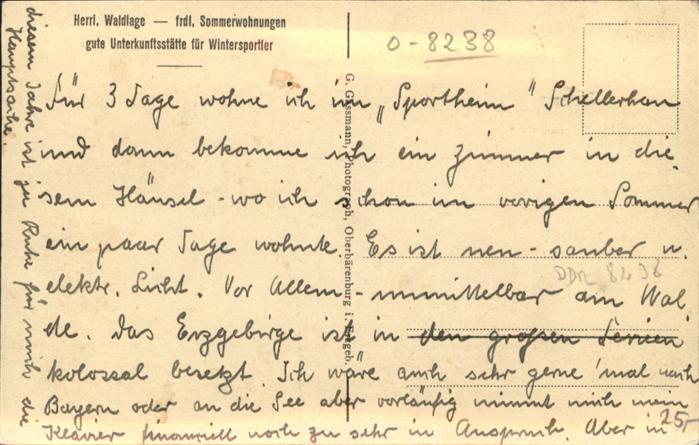 Herrl. Waldlage — frdl. Sommerwohnungen
gute Unterkunftsstätte für Wintersportler
0-8238
G. Gössmann, Photograph, Oberbärenburg i. Erzgeb.
Für 3 Tage wohne ich im „Sportheim" Schellerhau
und dann bekomme ich ein Zimmer in die
sem Häusel - wo ich schon im vorigen Sommer
ein paar Tage wohnte. Es ist neu - sauber u.
elektr. Licht. Vor Allem - unmittelbar am Wal
de. Das Erzgebirge ist in den großen Ferien
kolossal besetzt. Ich wäre auch sehr gerne 'mal nach
Bayern oder an die See aber vorläufig nimmt mich mein
Klavier finanziell noch zu sehr in Anspruch. Aber in
diesem Jahre ist ja Ruhe für mich die
Hauptsache.
8238
25